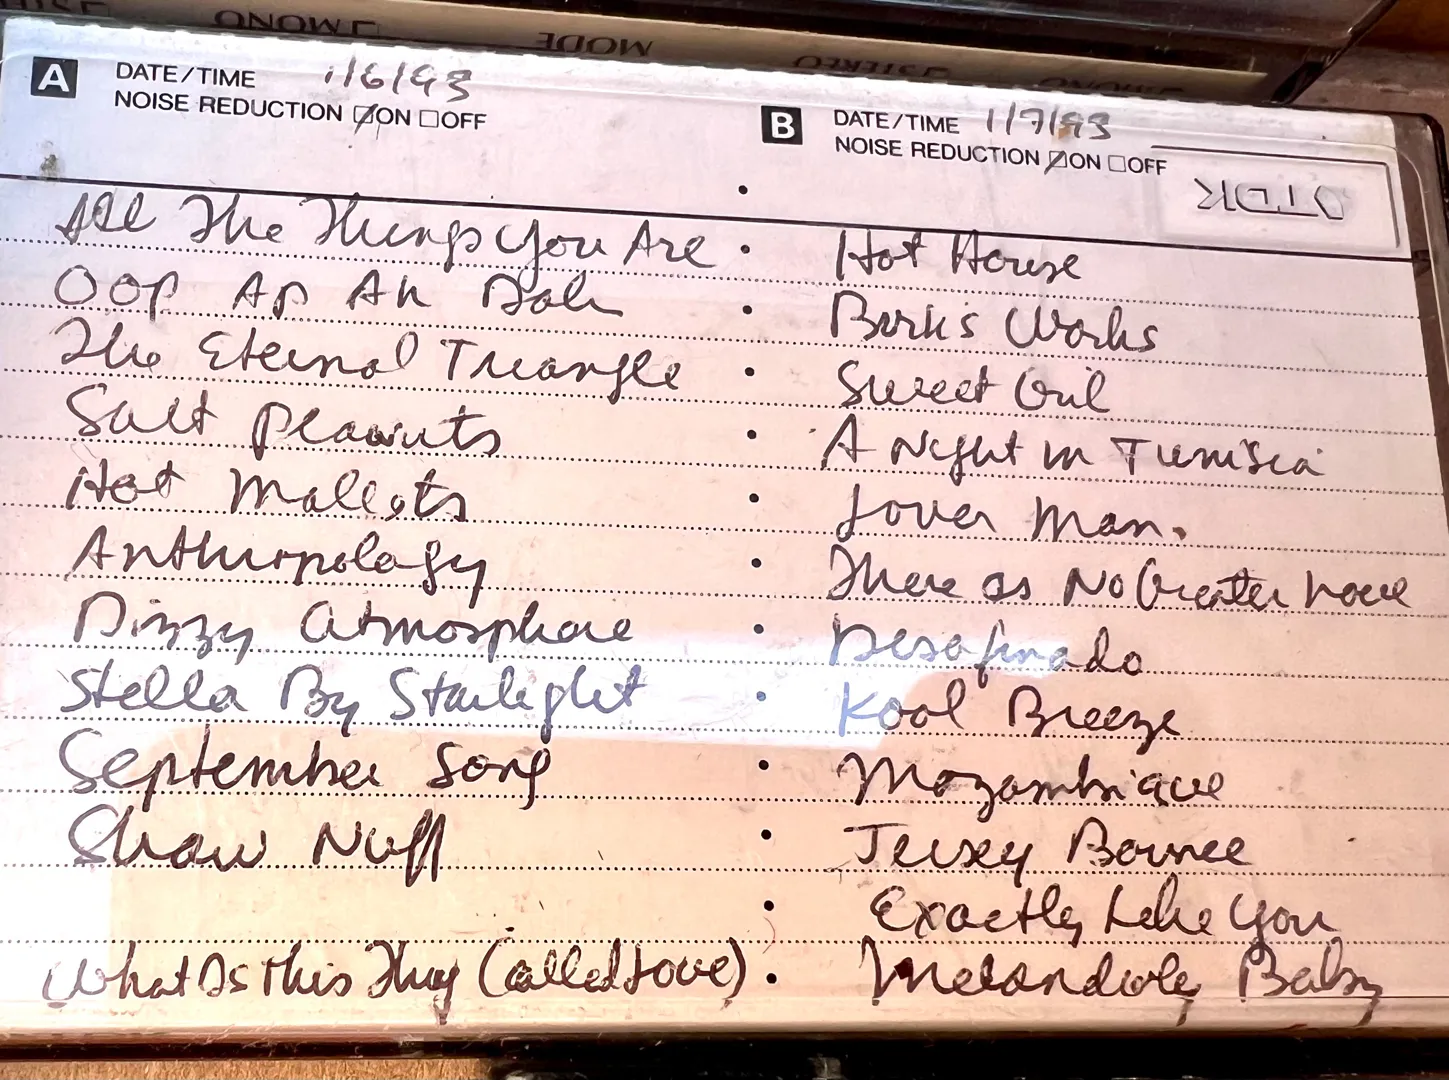 MONO
MODE
STEREO
A DATE/TIME 1/6/93
NOISE REDUCTION ON OFF
B DATE/TIME 1/7/93
NOISE REDUCTION ON OFF
TDK
All The Things You Are
OOP AP AH Dah
The Eternal Triangle
Salt Peanuts
Hot Mallets
Anthropology
Dizzy Atmosphere
Stella By Starlight
September Song
Shaw Nuff
What Is this Thing (Called Love)
Hot House
Birk's Works
Sweet
A Night in Tunisia
Lover Man.
There is No Greater Love
Desafinado
Kool Breeze
Mozambique
Jersey Bounce
Exactly Like You
Melancholy Baby